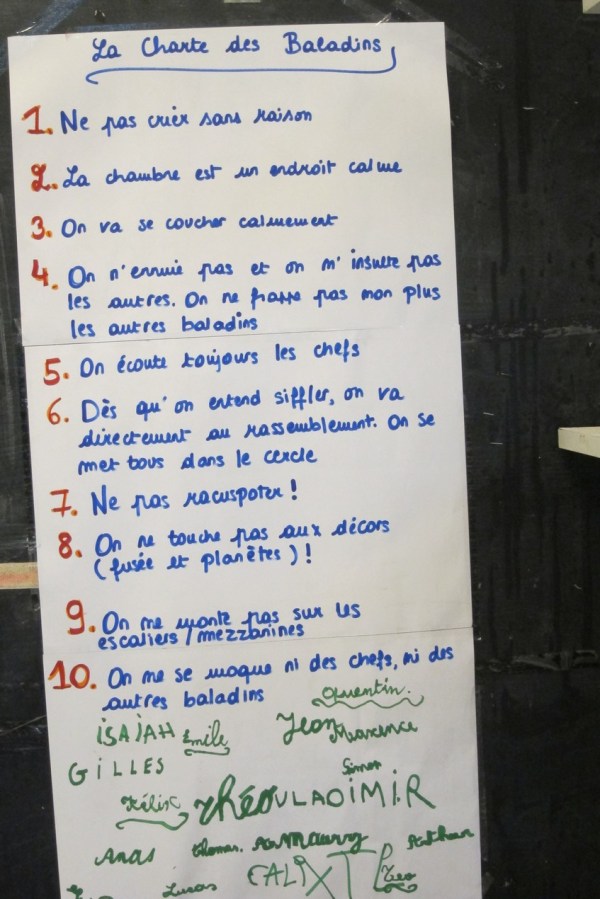 La Charte des Baladins
1. Ne pas crier sans raison
2. La chambre est un endroit calme
3. On va se coucher calmement
4. On n'ennuie pas et on n'insulte pas
les autres. On ne frappe pas non plus
les autres baladins
5. On écoute toujours les chefs
6. Dès qu'on entend siffler, on va
directement au rassemblement. On se
met tous dans le cercle
7. Ne pas racuspoter !
8. On ne touche pas aux décors
(fusée et planètes) !
9. On ne monte pas sur les
escaliers / mezzanines
10. On ne se moque ni des chefs, ni des
autres baladins
Quentin.
ISAIAH Émile Jean Maxence
GILLES
Simon
Félix Théo VLADIMIR
Anas Thomas. Amaury Arthur
Lucas CALIXTE Léo